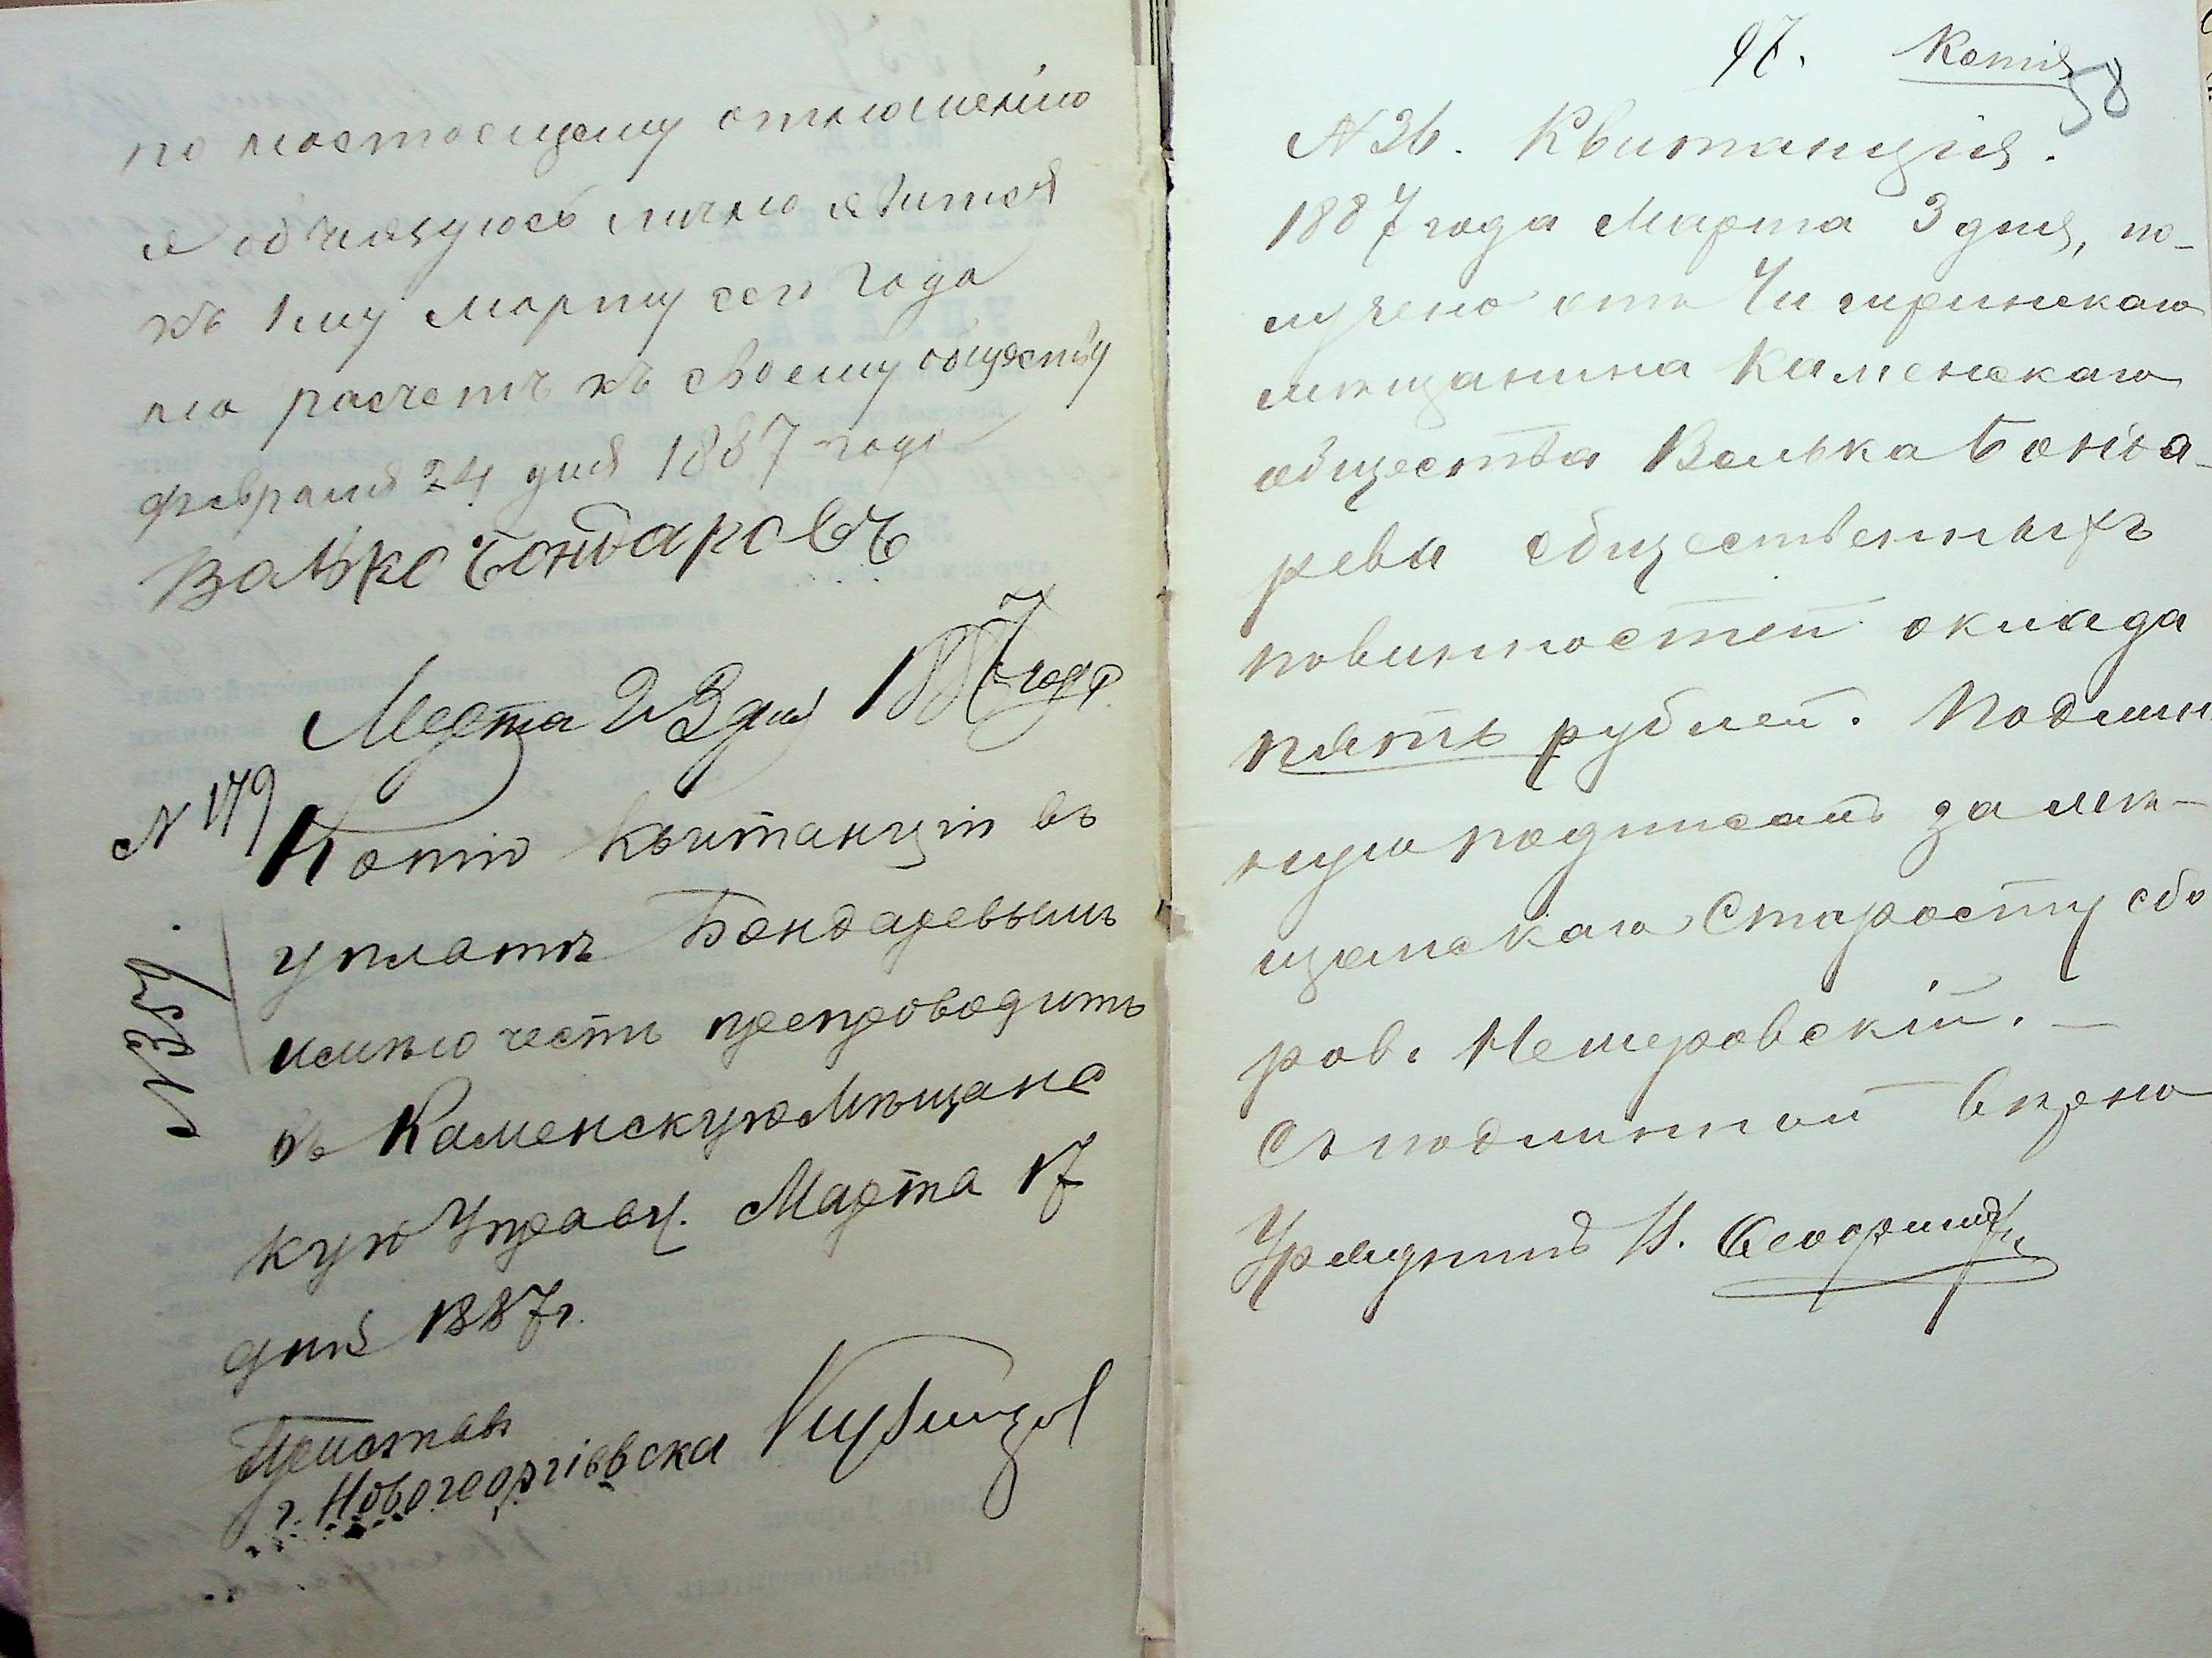 по настоящему отношенію
я обчязуюсь лично явится
къ 1му марту сего года
на расчетъ къ своему обществу
февраля 24 дня 1887 года
Волько Бондаровъ
Марта 23 дня 1887 года
№ 179
Копію квитанціи въ
уплатѣ Бондаревымъ
имѣю честь препроводить
въ Каменскую Мѣщанс
кую Управу. Марта 17
дня 1887 г.
№ 359.
Приставъ
г. Новогеоргіевска
97. Копія
58
№ 36. Квитанція.
1887 года Марта 3 дня, по-
лучено отъ Чигиринскаго
мѣщанина Каменскаго
общества Волька Бонда-
рева общественныхъ
повинностей оклада
пять рублей. Подлин
ную подписалъ за мѣ-
щанскаго Старосту сбо
ров. Немеровскій. —
Съ подлинной вѣрно
Урядникъ И.